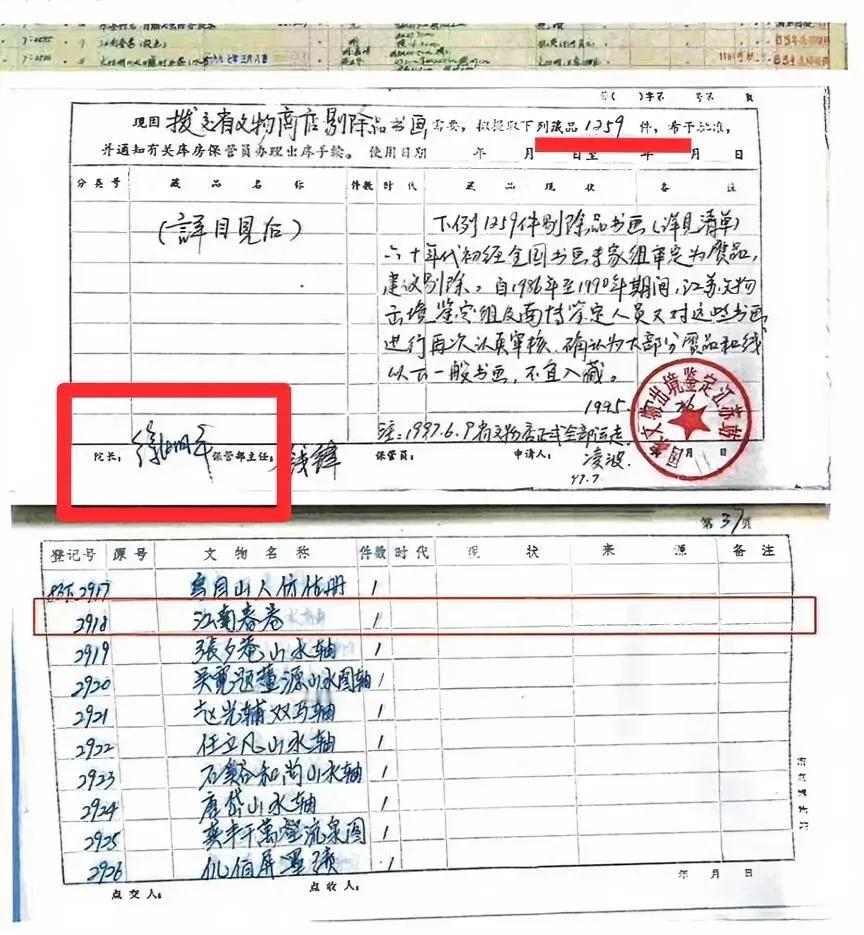 现因 拨交省文物商店剔除品书画 需要，拟提取下列藏品 1259 件，希予批准，
并通知有关库房保管员办理出库手续。 使用日期 年 月 日至 年 月 日
分类号 藏品名称 件数 时代 藏品现状 备注
(詳目見后)
下例1259件剔除品书画(详见清单)
六十年代初经全国书画专家组审定为贋品，
建议剔除。自1986年至1990年期间，江苏文物
出境鉴定组及南博鉴定人员又对这些书画
进行再次认真审核，确认为大部分贋品和线
以下一般书画，不宜入藏。
1995.
注：1997.6.9省文物店正式全部运走
院长： 徐湖平 保管部主任： 钱锋 保管员： 申请人： 凌波 月 日
97.7
国家文物出境鉴定江苏站
第37页
登记号 原号 文物名称 件数 时代 现状 来源 备注
2917 烏目山人仿古册 1
2918 江南春卷 1
2919 張夕庵山水轴 1
2920 吴寬题董源山水图轴 1
2921 赵光辅双马轴 1
2922 任立凡山水轴 1
2923 石溪和尚山水轴 1
2924 唐岱山水轴 1
2925 龚半千萬壑流泉图 1
2926 1
点交人： 点收人： 年 月 日